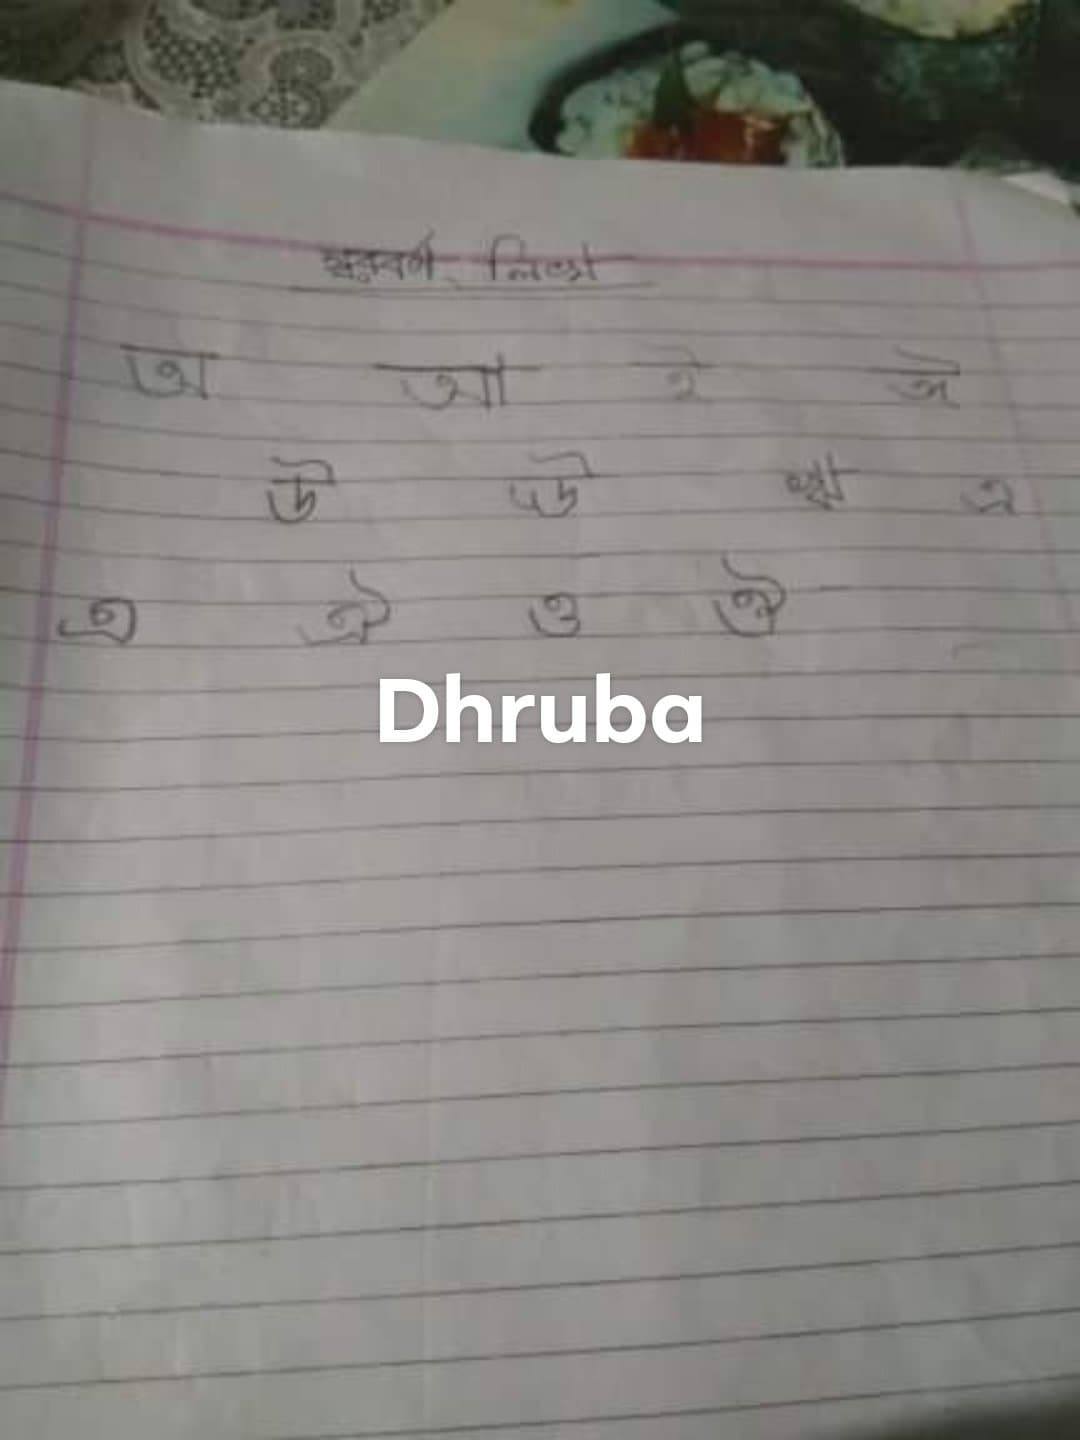 স্বরবর্ণ লিখো
অ আ ই ঈ
উ ঊ ঋ এ
এ ঐ ও ঔ
Dhruba